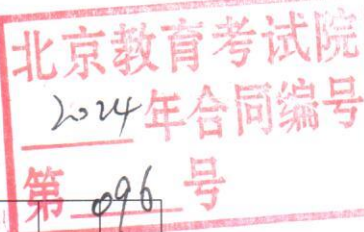 北京教育考试院
2024年合同编号
第 096 号